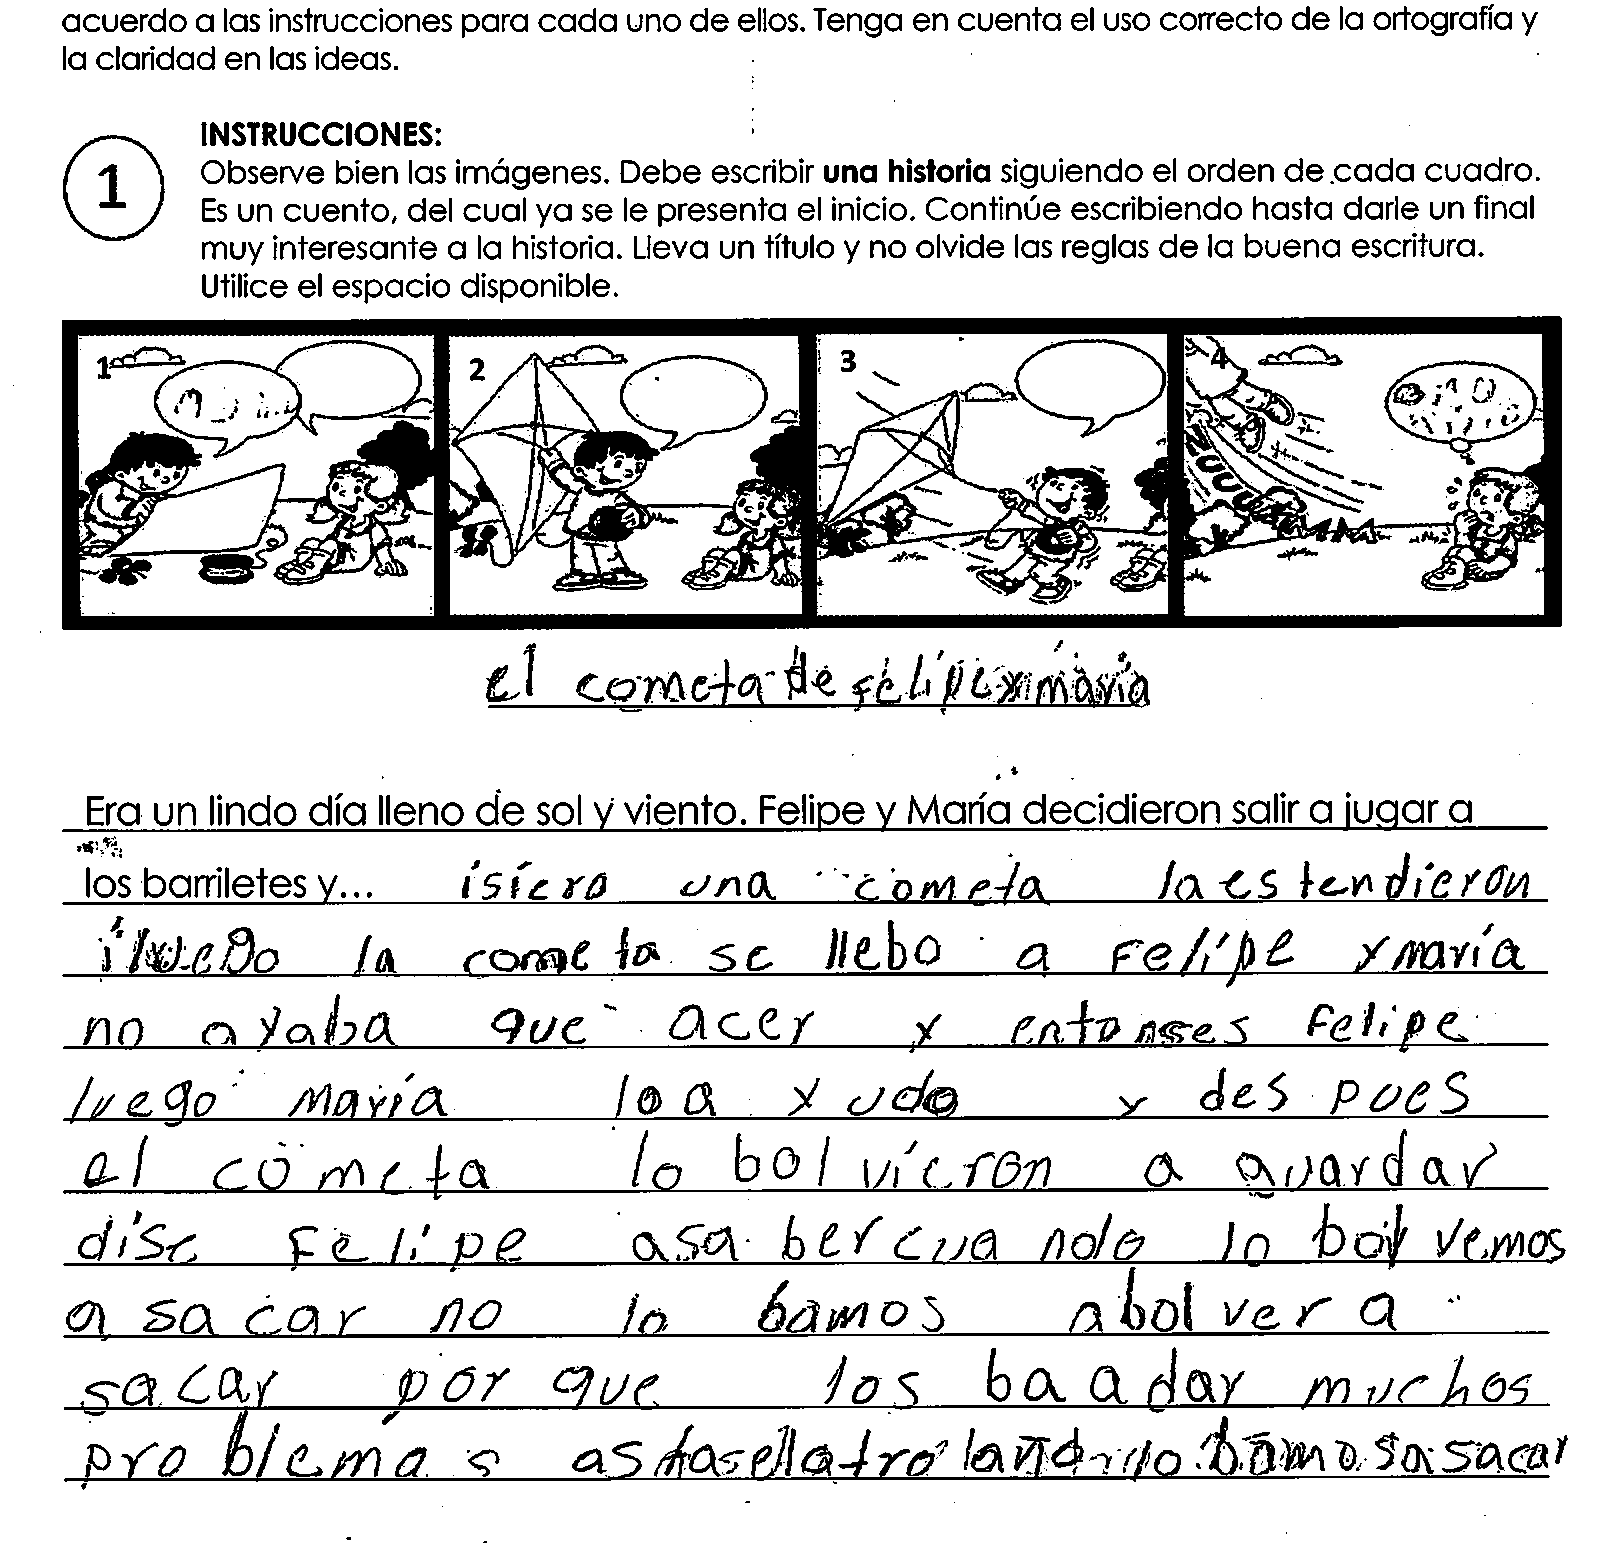 acuerdo a las instrucciones para cada uno de ellos. Tenga en cuenta el uso correcto de la ortografía y
la claridad en las ideas.
INSTRUCCIONES:
1
Observe bien las imágenes. Debe escribir una historia siguiendo el orden de cada cuadro.
Es un cuento, del cual ya se le presenta el inicio. Continúe escribiendo hasta darle un final
muy interesante a la historia. Lleva un título y no olvide las reglas de la buena escritura.
Utilice el espacio disponible.
1 2 3 4
el cometa de felipe y maria
Era un lindo día lleno de sol y viento. Felipe y María decidieron salir a jugar a
los barriletes y... isiero una cometa la estendieron
iluego la cometa se llebo a Felipe y maría
no ayaba que acer y entonses Felipe
luego María lo a yudo y des pues
el cometa lo bolvieron a guardar
dise Felipe asa ber cua ndo lo bolvemos
a sacar no lo bamos abolver a
sacar por que los ba a dar muchos
problema s astas el otro lo bamos a sacar